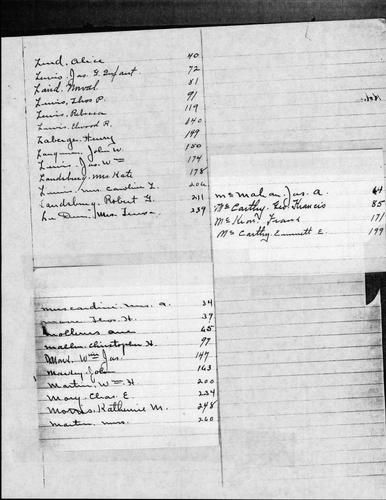 Lund, Alice 40
Lewis, Jas. G. Infant 72
Laird, Noval 81
Lewis, Thos P. 91
Lewis, Rebecca 119
Lewis, Elwood R. 140
Laberge, Henry 149
Langman, John W. 150
Lewis, Jas. Wm 174
Landsburg, Mrs Kate 178
Lewis, Mrs. Caroline L. 206
Landsburg, Robert G. 211
Le Duc, Mrs. 239
McMahan, Jas. A. 64
McCarthy, Geo Francis 85
McKeon, Frank 171
McCarthy, Emmett E. 199
Muscardini, Mrs. A. 34
Mann, Thos. H. 37
Mollens 65
Mallen, Christopher H. 97
Mark, Wm Jas. 147
Maxley, John 163
Martin, Wm H. 200
Mory, Chas. E. 234
Morris, Katherine M. 248
Martin, Miss. 260